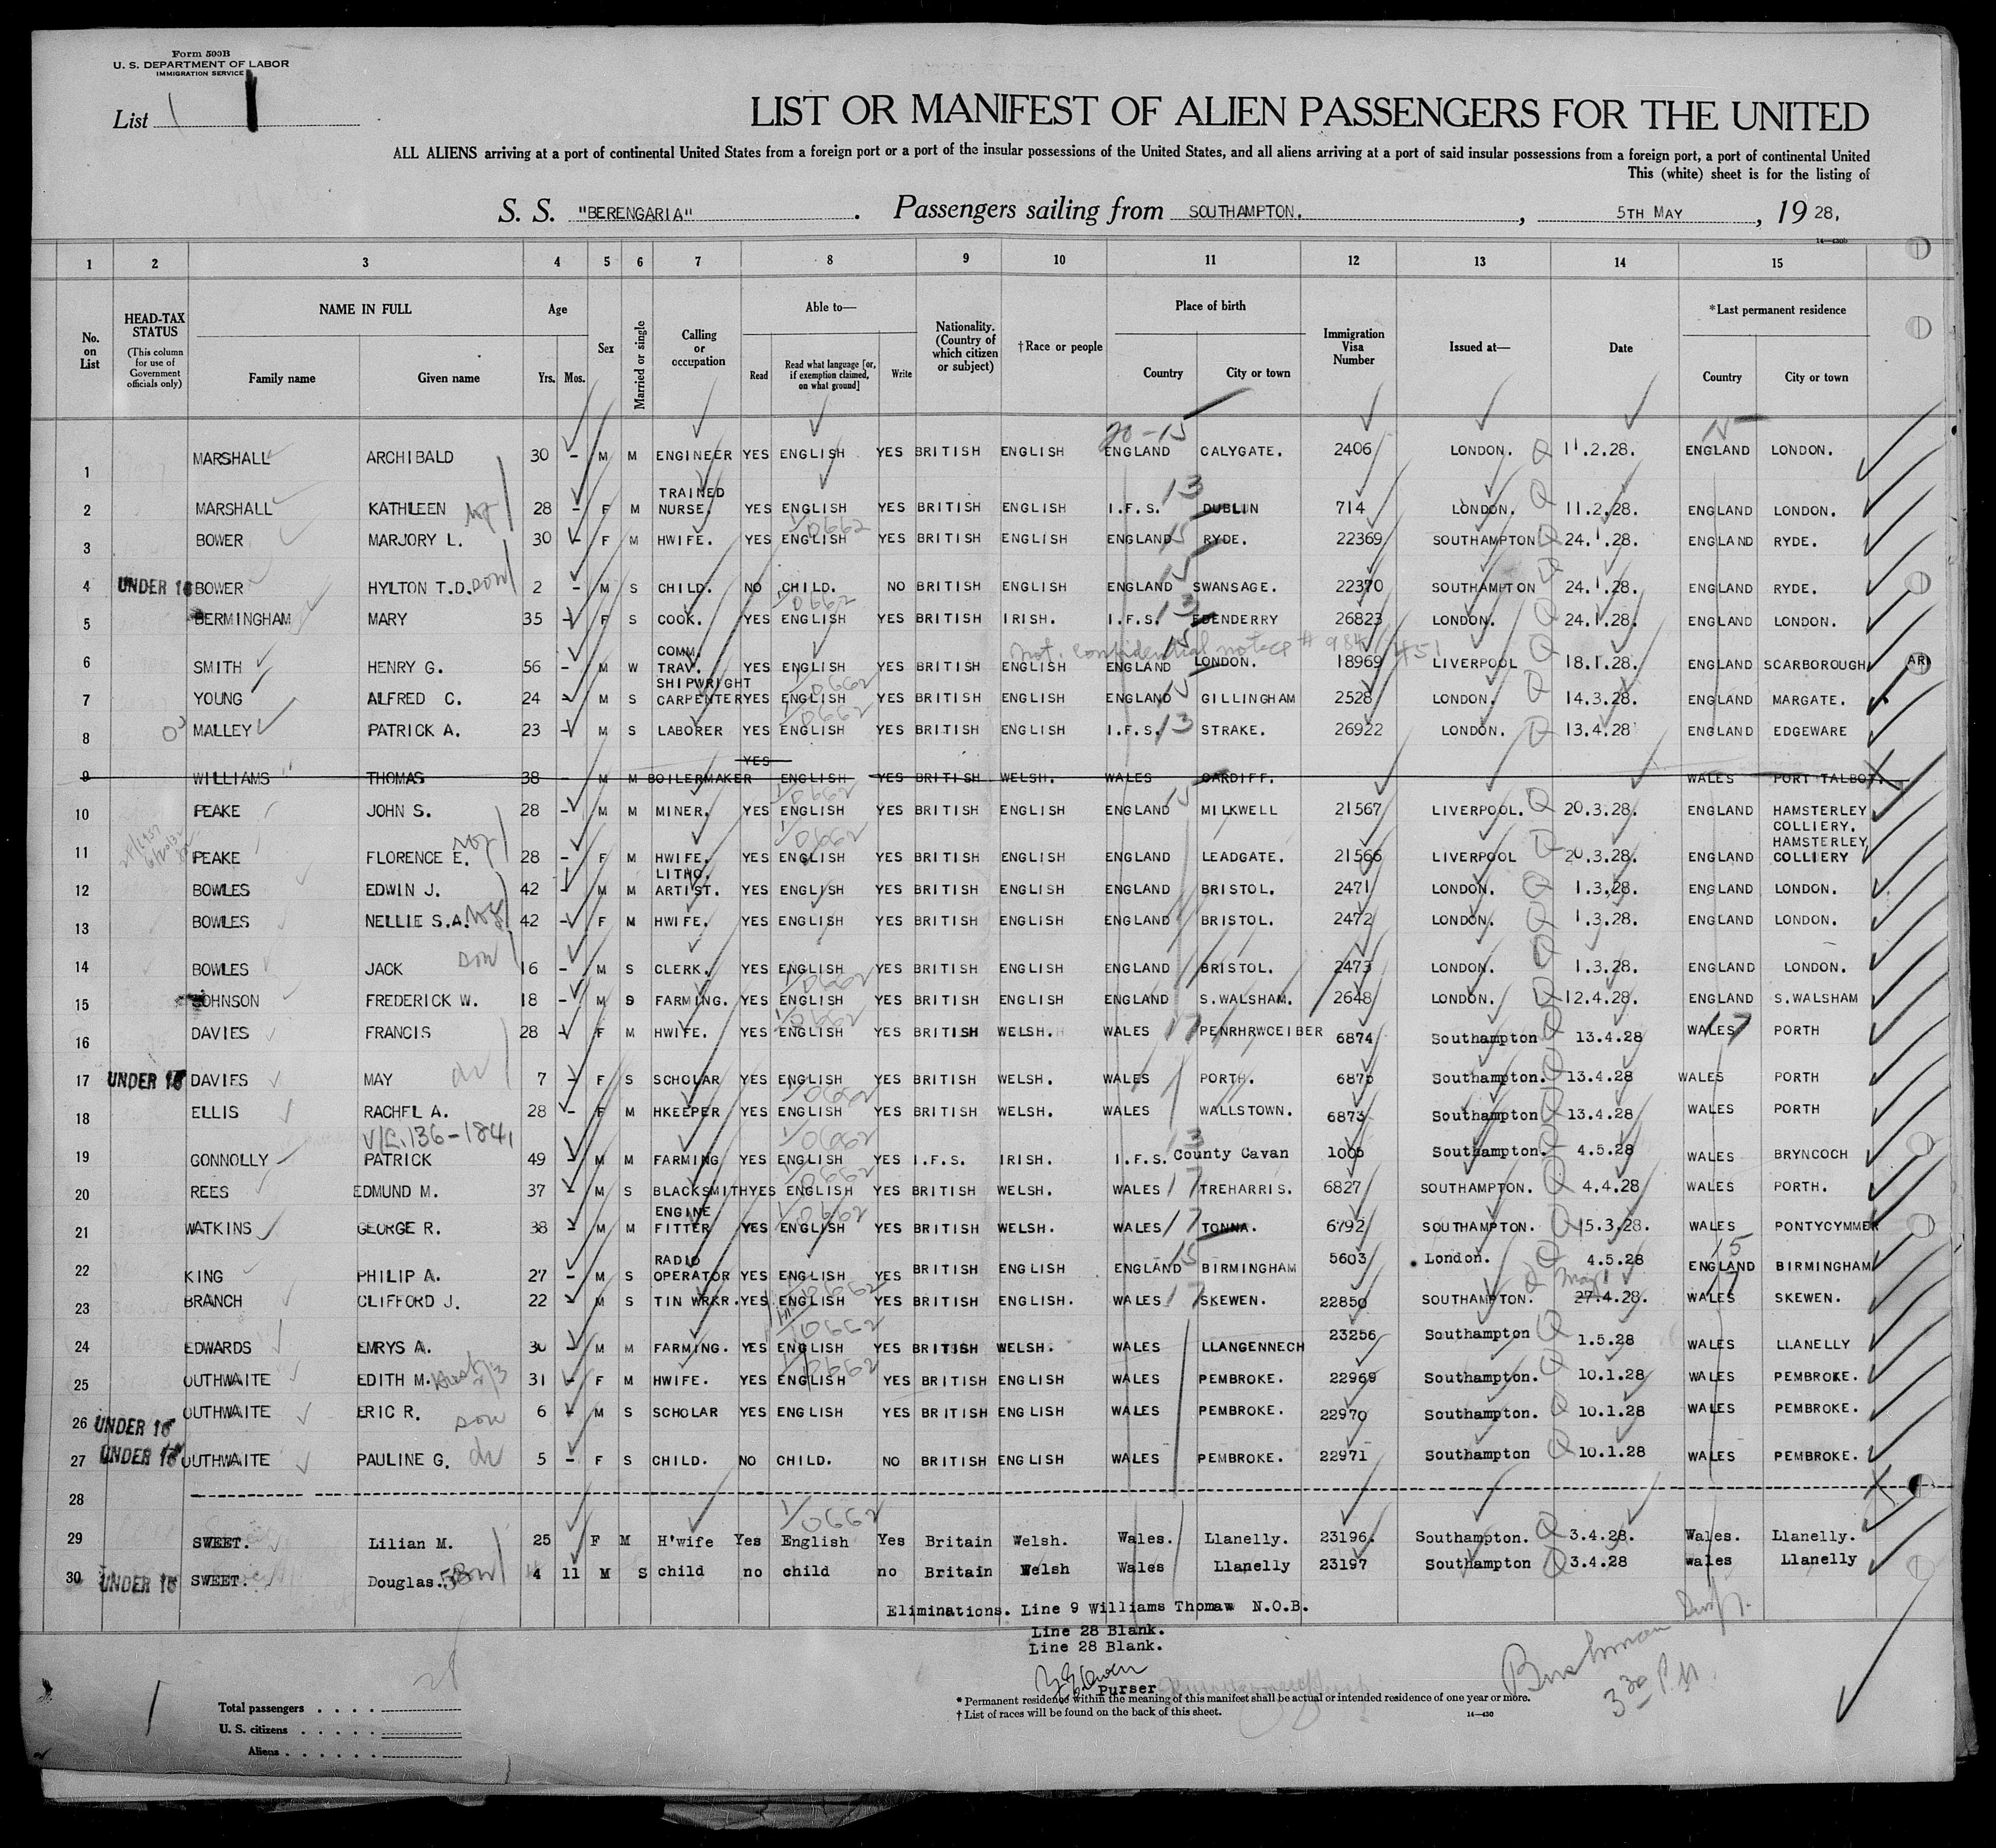 Form 500B
U. S. DEPARTMENT OF LABOR
IMMIGRATION SERVICE
List 1 1
LIST OR MANIFEST OF ALIEN PASSENGERS FOR THE UNITED
ALL ALIENS arriving at a port of continental United States from a foreign port or a port of the insular possessions of the United States, and all aliens arriving at a port of said insular possessions from a foreign port, a port of continental United
This (white) sheet is for the listing of
S. S. "BERENGARIA" . Passengers sailing from SOUTHAMPTON. , 5TH MAY , 19 28.
14—430b
1 2 3 4 5 6 7 8 9 10 11 12 13 14 15
No. on List
HEAD-TAX STATUS
(This column for use of Government officials only)
NAME IN FULL
Family name Given name
Age
Yrs. Mos.
Sex
Married or single
Calling or occupation
Able to—
Read
Read what language [or, if exemption claimed, on what ground]
Write
Nationality. (Country of which citizen or subject)
†Race or people
Place of birth
Country City or town
Immigration Visa Number
Issued at—
Date
*Last permanent residence
Country City or town
20-15 15
1 MARSHALL ARCHIBALD 30 - M M ENGINEER YES ENGLISH YES BRITISH ENGLISH ENGLAND CALYGATE. 2406 LONDON. 11.2.28. ENGLAND LONDON.
2 MARSHALL KATHLEEN 28 - F M TRAINED NURSE. YES ENGLISH YES BRITISH ENGLISH I.F.S. 13 DUBLIN 714 LONDON. 11.2.28. ENGLAND LONDON.
3 BOWER MARJORY L. 30 - F M HWIFE. YES ENGLISH YES BRITISH ENGLISH ENGLAND 15 RYDE. 22369 SOUTHAMPTON 24.1.28. ENGLAND RYDE.
4 UNDER 16 BOWER HYLTON T.D. son 2 - M S CHILD. NO CHILD. NO BRITISH ENGLISH ENGLAND 15 SWANSAGE. 22370 SOUTHAMPTON 24.1.28. ENGLAND RYDE.
5 BERMINGHAM MARY 35 - F S COOK. YES ENGLISH YES BRITISH IRISH. I.F.S. 13 EDENDERRY 26823 LONDON. 24.1.28. ENGLAND LONDON.
6 SMITH HENRY G. 56 - M W COMM. TRAV. YES ENGLISH YES BRITISH ENGLISH ENGLAND 15 LONDON. 18969 LIVERPOOL 18.1.28. ENGLAND SCARBOROUGH AR
7 YOUNG ALFRED C. 24 - M S SHIPWRIGHT CARPENTER YES ENGLISH YES BRITISH ENGLISH ENGLAND 15 GILLINGHAM 2528 LONDON. 14.3.28. ENGLAND MARGATE.
8 MALLEY PATRICK A. 23 - M S LABORER YES ENGLISH YES BRITISH ENGLISH I.F.S. 13 STRAKE. 26922 LONDON. 13.4.28 ENGLAND EDGEWARE
9 WILLIAMS THOMAS 38 - M M BOILERMAKER YES ENGLISH YES BRITISH WELSH. WALES CARDIFF. WALES PORT TALBOT.
10 PEAKE JOHN S. 28 - M M MINER. YES ENGLISH YES BRITISH ENGLISH ENGLAND 15 MILKWELL 21567 LIVERPOOL. 20.3.28. ENGLAND HAMSTERLEY COLLIERY.
11 PEAKE FLORENCE E. 28 - F M HWIFE. YES ENGLISH YES BRITISH ENGLISH ENGLAND LEADGATE. 21566 LIVERPOOL 20.3.28. ENGLAND HAMSTERLEY COLLIERY
12 BOWLES EDWIN J. 42 - M M LITHO. ARTIST. YES ENGLISH YES BRITISH ENGLISH ENGLAND BRISTOL. 2471 LONDON. 1.3.28. ENGLAND LONDON.
13 BOWLES NELLIE S.A. 42 - F M HWIFE. YES ENGLISH YES BRITISH ENGLISH ENGLAND BRISTOL. 2472 LONDON. 1.3.28. ENGLAND LONDON.
14 BOWLES JACK son 16 - M S CLERK. YES ENGLISH YES BRITISH ENGLISH ENGLAND BRISTOL. 2473 LONDON. 1.3.28. ENGLAND LONDON.
15 JOHNSON FREDERICK W. 18 - M S FARMING. YES ENGLISH YES BRITISH ENGLISH ENGLAND S.WALSHAM. 2648 LONDON. 12.4.28. ENGLAND S.WALSHAM
16 DAVIES FRANCIS 28 - F M HWIFE. YES ENGLISH YES BRITISH WELSH. WALES 17 PENRHRWCEIBER 6874 Southampton 13.4.28 WALES 17 PORTH
17 UNDER 16 DAVIES MAY 7 - F S SCHOLAR YES ENGLISH YES BRITISH WELSH. WALES PORTH. 6875 Southampton. 13.4.28 WALES PORTH
18 ELLIS RACHEL A. 28 - F M HKEEPER YES ENGLISH YES BRITISH WELSH. WALES WALLSTOWN. 6873 Southampton 13.4.28 WALES PORTH
V/L.136-1841
19 CONNOLLY PATRICK 49 - M M FARMING YES ENGLISH YES I.F.S. IRISH. I.F.S. 13 County Cavan 1006 Southampton. 4.5.28 WALES BRYNCOCH
20 REES EDMUND M. 37 - M S BLACKSMITH YES ENGLISH YES BRITISH WELSH. WALES 17 TREHARRIS. 6827 SOUTHAMPTON. 4.4.28 WALES PORTH.
21 WATKINS GEORGE R. 38 - M M ENGINE FITTER YES ENGLISH YES BRITISH WELSH. WALES 17 TONNA. 6792 SOUTHAMPTON. 15.3.28. WALES PONTYCYMMER
22 KING PHILIP A. 27 - M S RADIO OPERATOR YES ENGLISH YES BRITISH ENGLISH ENGLAND 15 BIRMINGHAM 5603 London. 4.5.28 ENGLAND 15 BIRMINGHAM
23 BRANCH CLIFFORD J. 22 - M S TIN WRKR. YES ENGLISH YES BRITISH ENGLISH. WALES 17 SKEWEN. 22850 SOUTHAMPTON. May 1 27.4.28. WALES 17 SKEWEN.
24 EDWARDS EMRYS A. 30 - M M FARMING. YES ENGLISH YES BRITISH WELSH. WALES LLANGENNECH 23256 Southampton 1.5.28 WALES LLANELLY
25 OUTHWAITE EDITH M. 31 - F M HWIFE. YES ENGLISH YES BRITISH ENGLISH WALES PEMBROKE. 22969 Southampton. 10.1.28 WALES PEMBROKE.
26 UNDER 16 OUTHWAITE ERIC R. son 6 - M S SCHOLAR YES ENGLISH YES BRITISH ENGLISH WALES PEMBROKE. 22970 Southampton. 10.1.28 WALES PEMBROKE.
27 UNDER 16 OUTHWAITE PAULINE G. 5 - F S CHILD. NO CHILD. NO BRITISH ENGLISH WALES PEMBROKE. 22971 Southampton 10.1.28 WALES PEMBROKE.
28
29 SWEET. Lilian M. 25 F M H'wife Yes English Yes Britain Welsh. Wales. Llanelly. 23196. Southampton. 3.4.28. Wales. Llanelly.
30 UNDER 16 SWEET. Douglas. Son 4 11 M S child no child no Britain Welsh Wales Llanelly 23197 Southampton 3.4.28 wales Llanelly
Eliminations. Line 9 Williams Thomaw N.O.B.
Line 28 Blank.
Line 28 Blank.
Purser
Total passengers . . . .
U. S. citizens . . . . .
Aliens . . . . . .
* Permanent residence within the meaning of this manifest shall be actual or intended residence of one year or more.
† List of races will be found on the back of this sheet.
14—430
3 30 P.M.